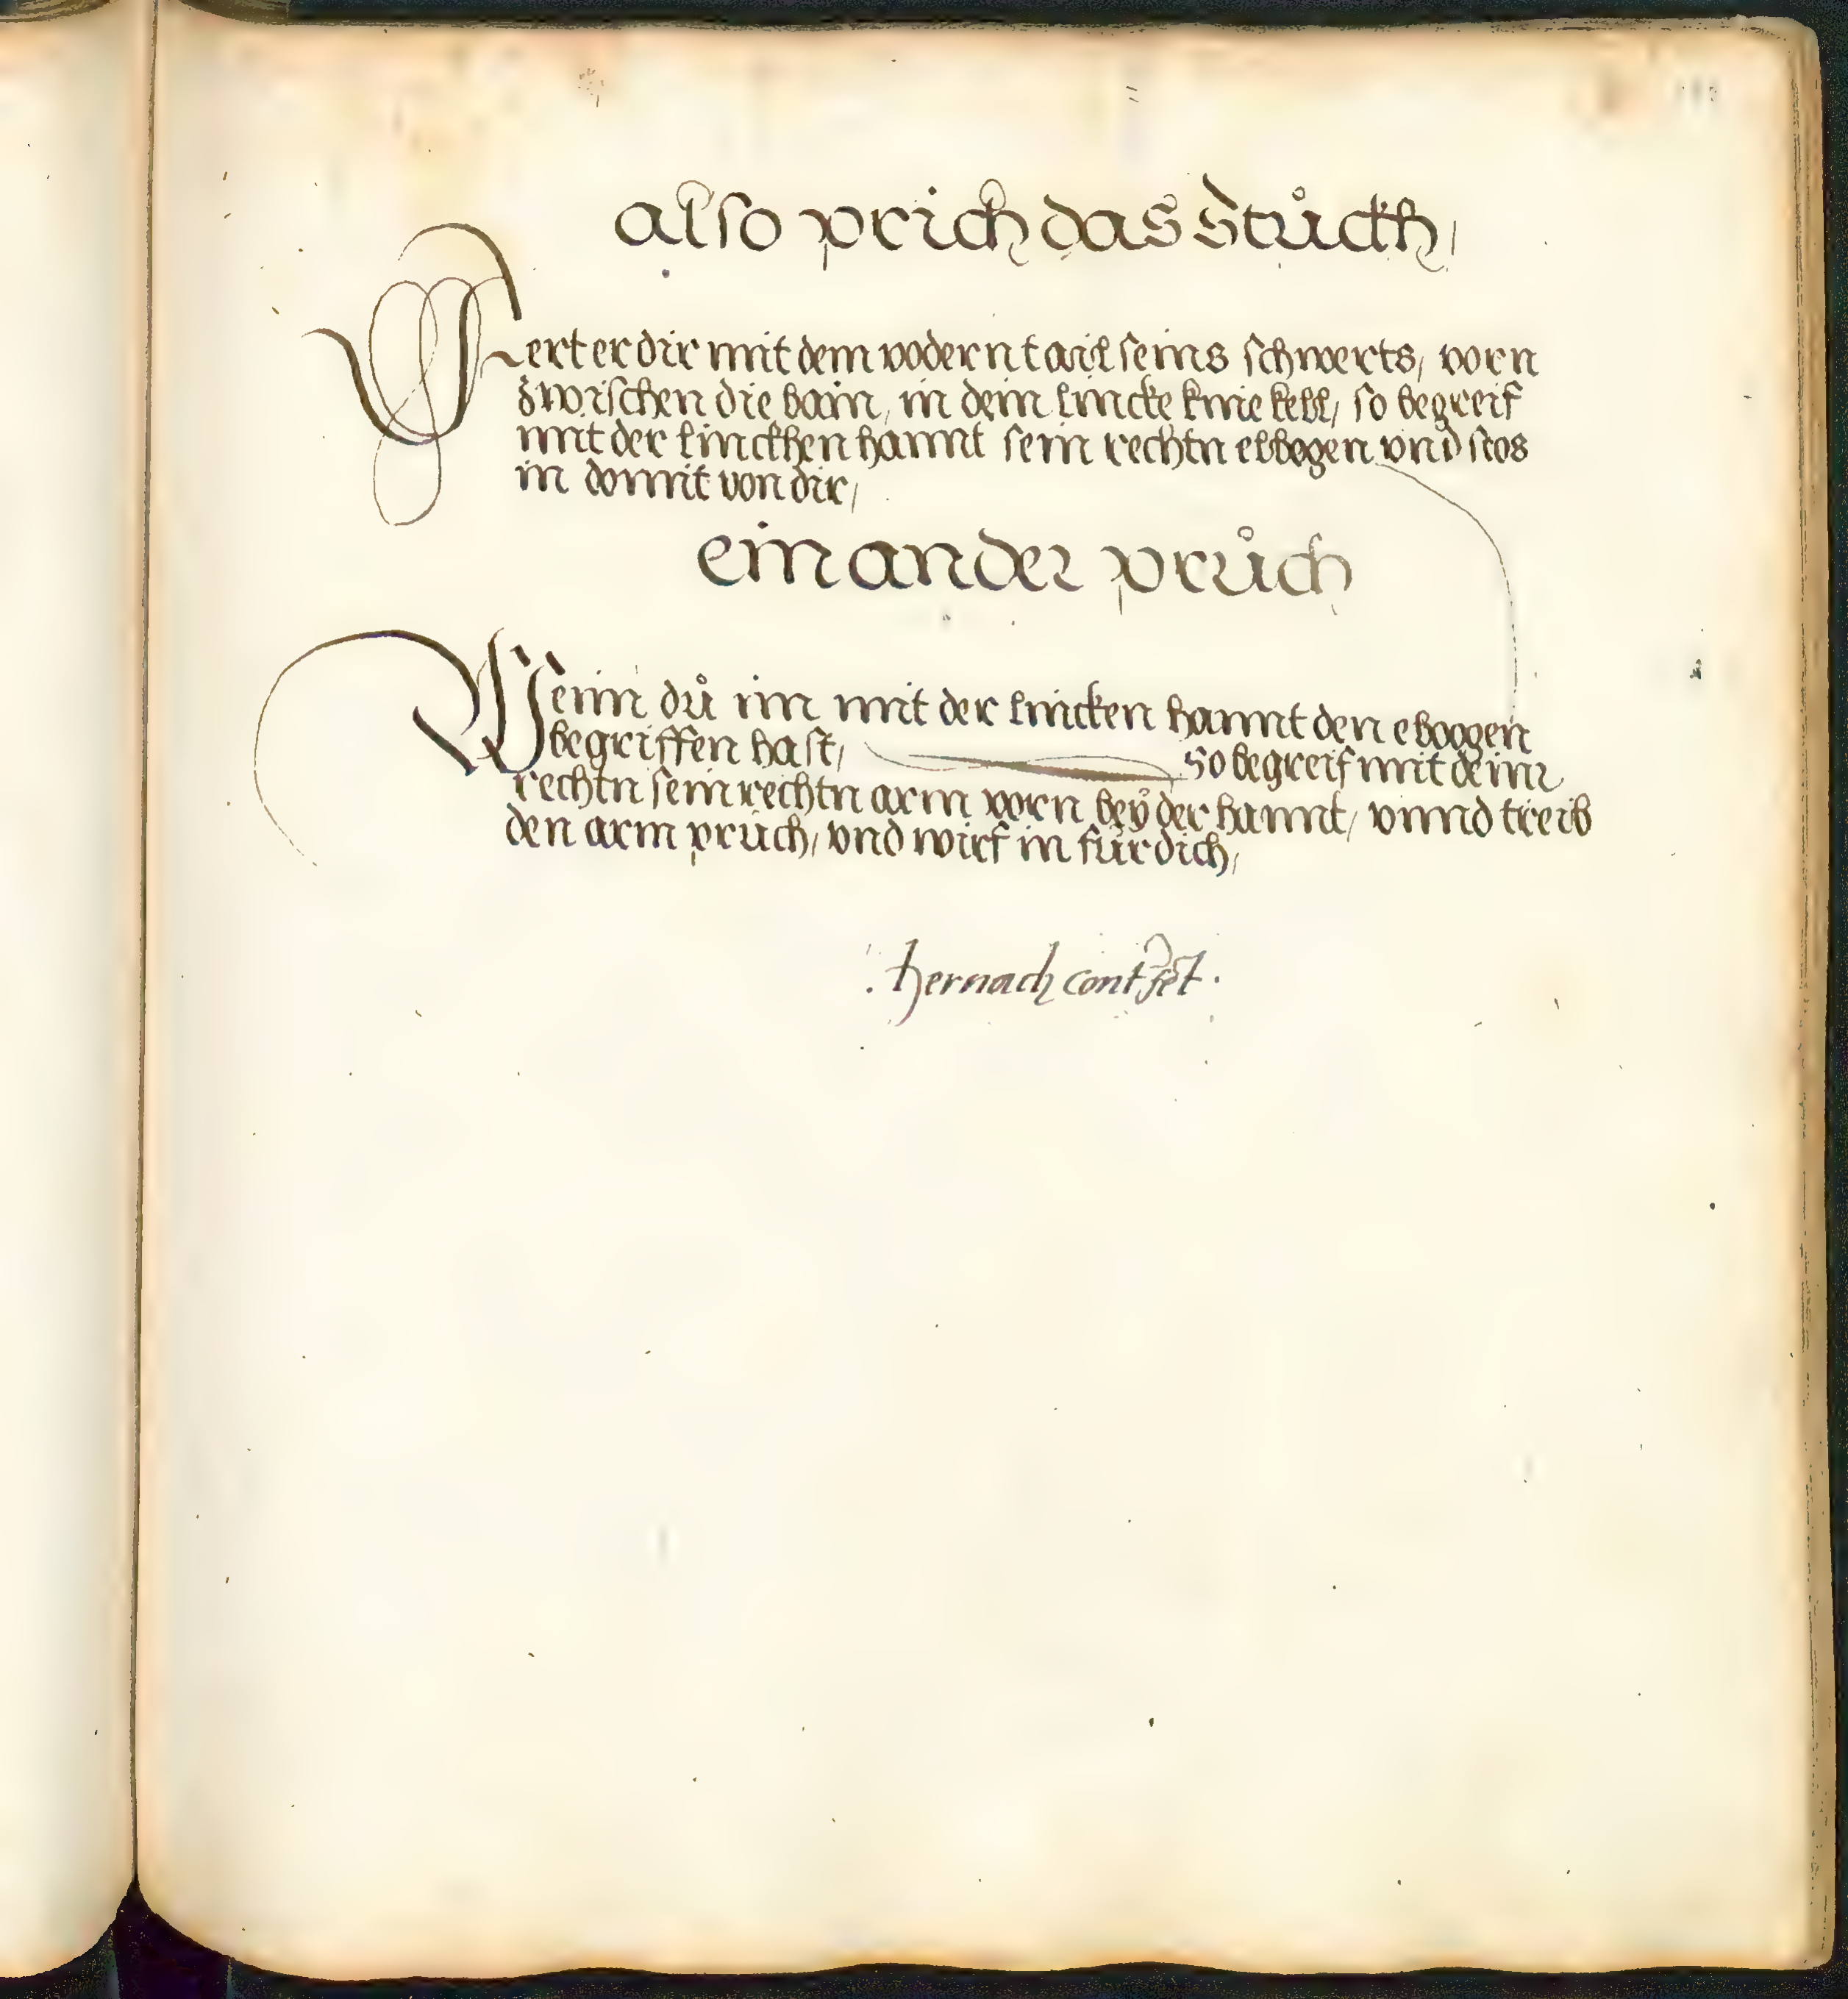 also prich das Stůckh,
Vert er dir mit dem vodern tail seins schwerts, vorn
zwischen die bain, in dein lincke knie kell, so begreif
mit der linckhen hannt sein rechtn elbogen vnd stos
in domit von dir,
ein ander průch
Wenn dů im mit der lincken hannt den eboogen
begriffen hast, So begreif mit deinr
rechtn sein rechtn arm vorn beÿ der hannt, vnnd treib
den arm průch, vnd wirf in für dich,
. hernach contfet .